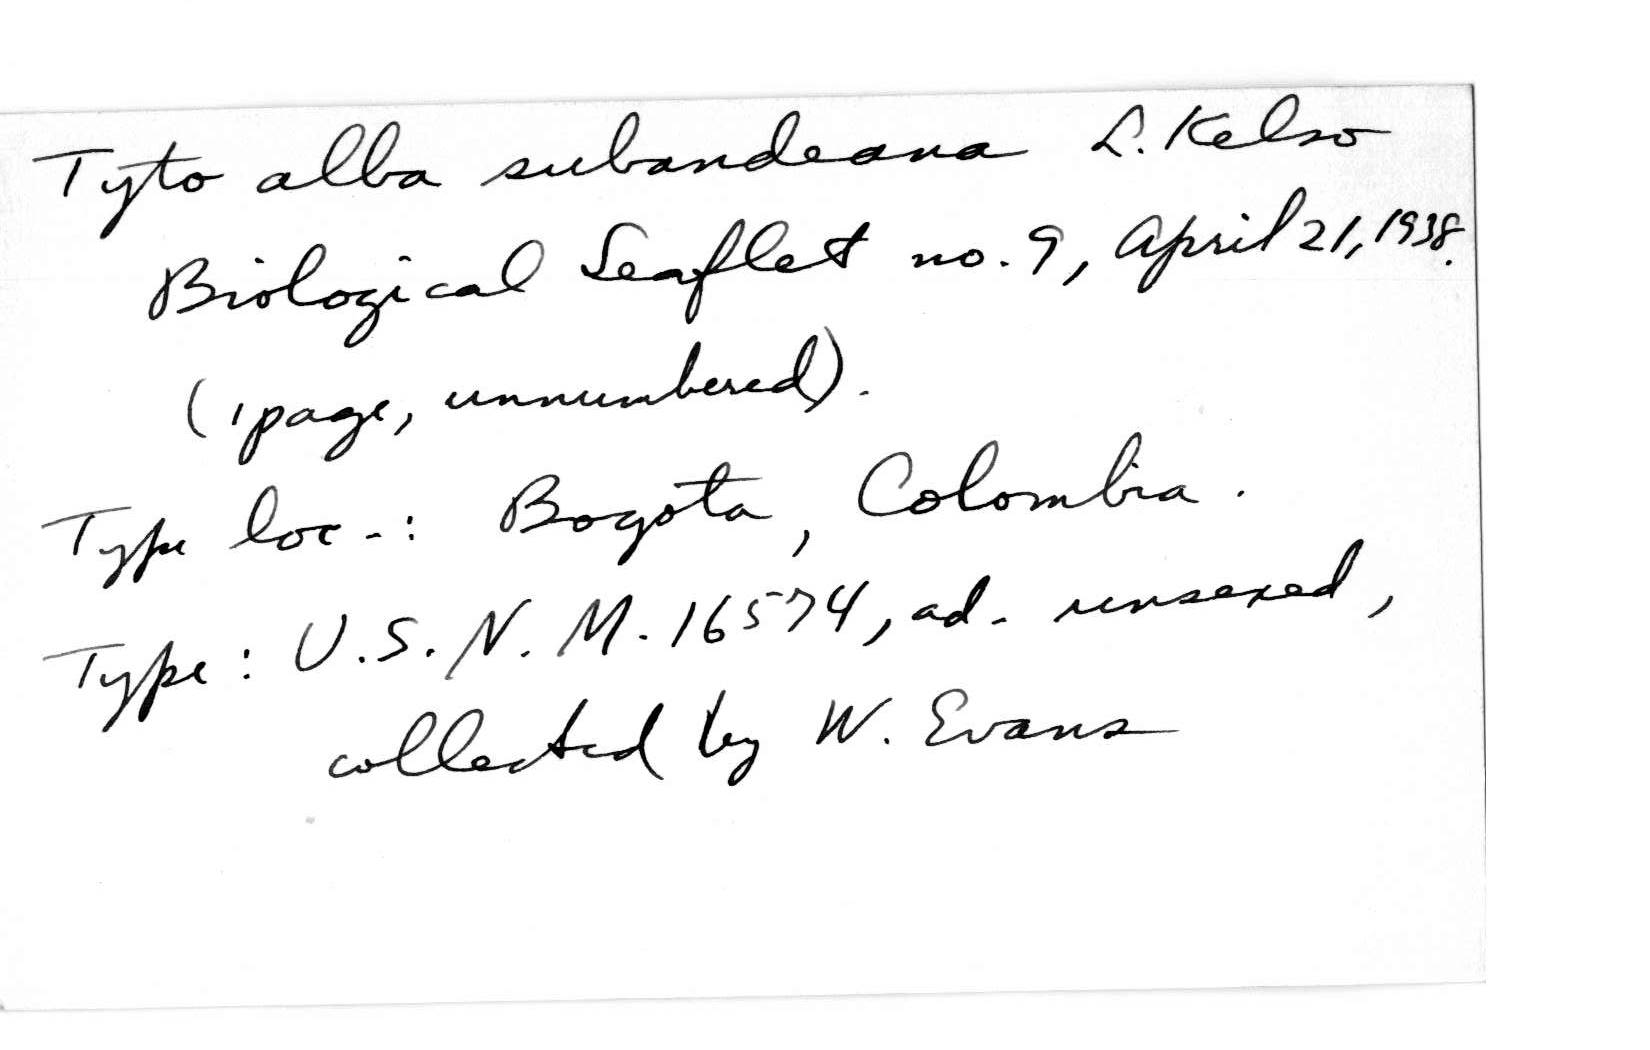 Tyto alba subandeana L. Kelso
Biological Leaflet no. 9, April 21, 1938.
(1 page, unnumbered).
Type loc.: Bogota, Colombia.
Type: U.S.N.M. 16574, ad. unsexed,
collected by W. Evans